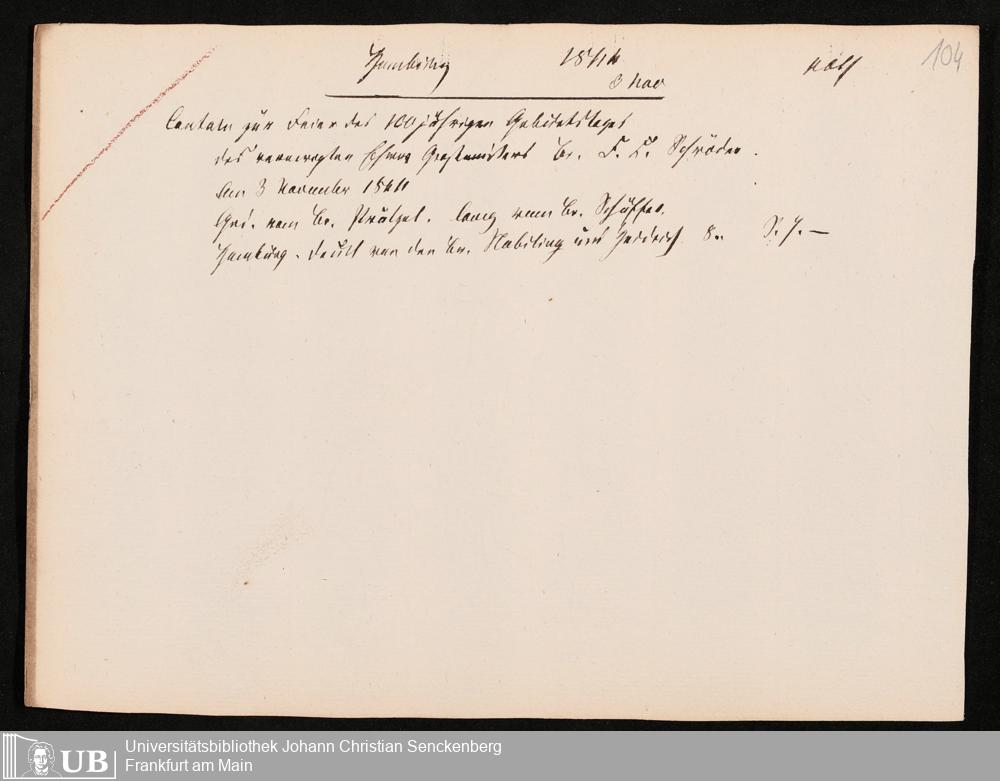 Hamburg 1844 104
3 Nov
Cantate zur Feier des 100jährigen Gebùrtstages
des verewigten Grossmeisters Br. F. L. Schröder.
Am 3 November 1844
Ged. vom Br. Prätzel. Comp vom Br. Schäffer.
Hamburg. Deukt von den Br. Nobiling und 8. S. 7. —
UB
Universitätsbibliothek Johann Christian Senckenberg
Frankfurt am Main